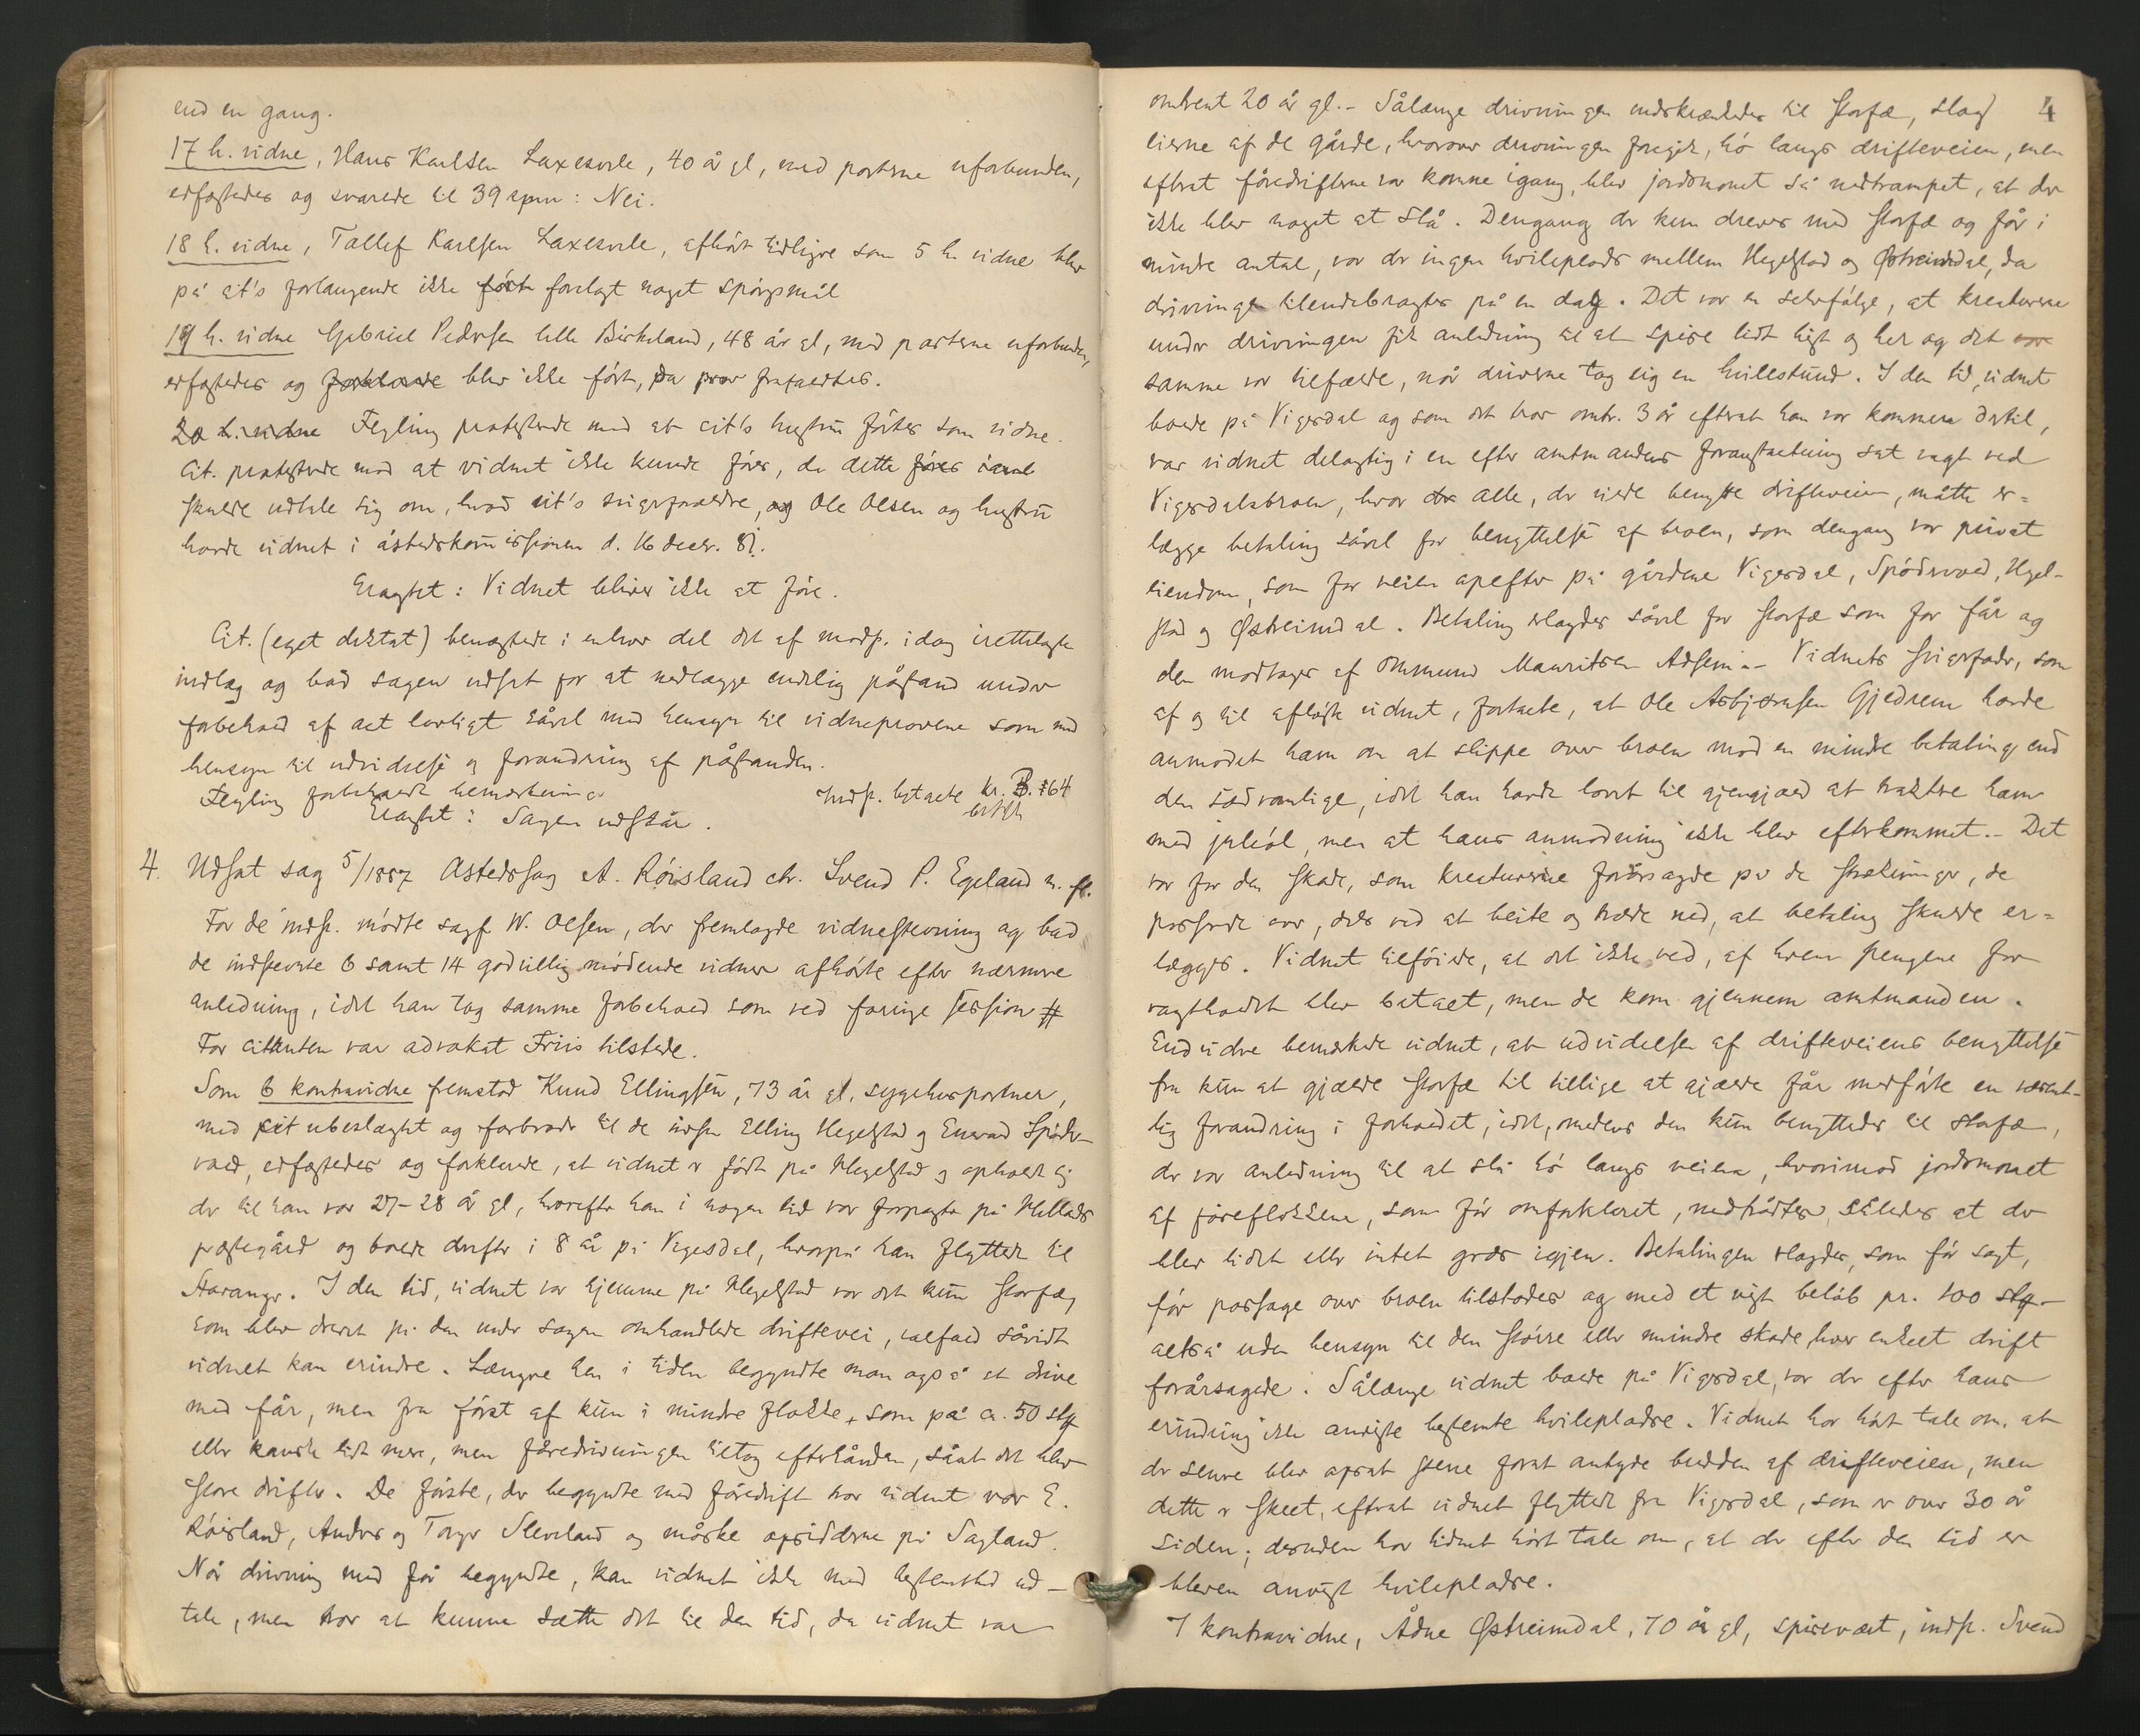 end en gang.
17 h. vidne, Hans Karlsen Laxesvele, 40 år gl, med parterne uforbunden,
edfæstedes og svarede til 39 spm: Nei.
18 h. vidne, Tallef Karlsen Laxesvele, afhørt tidligere som 5 h. vidne blev
på cit's forlangende ikke ført forelagt noget spørgsmål
19 h. vidne Gabriel Pedersen lille Birkeland, 48 år gl, med parterne uforbunden,
edfæstedes og forklarede blev ikke ført, da prov frafaldtes.
20 h. vidne Fegling protesterede mod at cit's hustru førtes som vidne.
Cit. protesterede mod at vidnet ikke kunde føres, da dette
skulde udtale sig om, hvad cit's svigerforældre, og Ole Olsen og hustru
havde vidnet i åstedskommissionen d. 16 decbr. 81.
Eragtet: Vidnet bliver ikke at føre.
Cit. (eget diktat) benegtede i enhver del det af modp. idag irettelagte
indlæg og bad sagen udsat for at nedlægge endelig påstand under
forbehold af alt lovligt såvel med hensyn til vidneprovene som med
hensyn til udvidelse og forandring af påstanden.
Fegling forbeholdt bemærkninger
Indst. betalte kr.
Eragtet: Sagen udstår.
4. Udsat sag 5/1887 Åstedssag A. Røisland ctr. Svend P. Egeland m. fl.
For de indst. mødte sagf W. Olsen, der fremlagde vidnestevning og bad
de indstevnte 6 samt 14 godvillig mødende vidner afhørte efter nærmere
anledning, idet han tog samme forbehold som ved forrige session #
For citanten var advokat Friis tilstede.
Som 6 kontravidne fremstod Knud Ellingsen, 73 år gl, sygehusportner,
med cit ubeslægtet og farbroder til de indst Elling Hegelstad og Enevald Spøder-
vold, edfæstedes og forklarede, at vidnet er født på Hegelstad og opholdt sig
der til han var 27-28 år gl, hvorefter han i nogen tid var forpagter på Hellands
præstegård og boede derefter i 8 år på Vigesdal, hvorpå han flyttede til
Stavanger. I den tid, vidnet var hjemme på Hegelstad var det kun storfæ,
som blev drevet på den under sagen omhandlede driftevei, ialfald såvidt
vidnet kan erindre. Længere hen i tiden begyndte man også at drive
med får, men fra først af kun i mindre flokke, som på ca. 50 stk
eller kanske lidt mere, men føredrivningen tiltog efterhånden, såat det blev
store drifter. De første, der begyndte med føredrift tror vidnet var E.
Røisland, Anders og Torger Sleveland og måske opsidderne på Sagland.
Når drivning med får begyndte, kan vidnet ikke med bestemthed ud-
tale, men tror at kunne sætte det til den tid, da vidnet var
4
omtrent 20 år gl. - Sålænge drivningen indskrænkedes til storfæ, slog
eierne af de gårde, hvorover drivningen foregik, hø langs drifteveien, men
efterat føredrifterne var komne igang, blev jordsmonet så nedtrampet, at der
ikke blev noget at slå. Dengang der kun dreves med storfæ og får i
mindre antal, var der ingen hvileplads mellem Hegelstad og Østreimdal, da
drivningen tilendebragtes på en dag. Det var en selvfølge, at kreaturene
under drivningen fik anledning til at spise lidt hist og her og det var
samme var tilfælde, når driverne tog sig en hvilestund. I den tid, vidnet
boede på Vigesdal og som det tror omtr. 3 år efterat han var kommen dertil,
var vidnet delagtig i en efter amtmandens foranstaltning sat vagt ved
Vigesdalsbroen, hvor der alle, der vilde benytte drifteveien, måtte er-
lægge betaling såvel for benyttelse af broen, som dengang var privat
eiendom, som for veien opefter på gårdene Vigesdal, Spødervold, Hegel-
stad og Østreimdal. Betaling erlagdes såvel for storfæ som for får og
den modtoges af Ommund Mauritsen Adsem. - Vidnets svigerfader, som
af og til afløste vidnet, fortalte, at Ole Asbjørnsen Gjedrem havde
anmodet ham om at slippe over broen mod en mindre betaling end
den sædvanlige, idet han havde lovet til gjengjæld at traktere ham
med juleøl, men at hans anmodning ikke blev efterkommet. - Det
var for den skade, som kreaturene forårsagde på de strækninger, de
passerede over, dels ved at beite og træde ned, at betaling skulde er-
lægges. Vidnet tilføiede, at det ikke ved, af hvem pengene for
vagtholdet blev betalt, men de kom gjennem amtmanden.
Endvidere bemærkede vidnet, at udvidelsen af drifteveiens benyttelse
fra kun at gjælde storfæ til tillige at gjælde får medførte en væsent-
lig forandring i forholdet, idet, medens den kun benyttedes til storfæ,
der var anledning til at slå hø langs veien, hvorimod jordsmonet
afføreflokkene, som før omforklaret, nedtrådtes, således at der
blev lidet eller intet græs igjen. Betalingen erlagdes, som før sagt,
før passage over broen tilstodes og med et vist beløb pr. 100 stk -
altså uden hensyn til den større eller mindre skade, hver enkelt drift
forårsagede. Sålænge vidnet boede på Vigesdal, var der efter hans
erindring ikke anviste bestemte hvilepladse. Vidnet har hørt tale om, at
der senere blev opsat stene forat antyde bredden af drifteveien, men
dette er skeet, efterat vidnet flyttede fra Vigesdal, som er over 30 år
siden; desuden har vidnet hørt tale om, at der efter den tid er
bleven anvist hvilepladse.
7 kontravidne, Ådne Østreimdal, 70 år gl, spisevært, indst. Svend